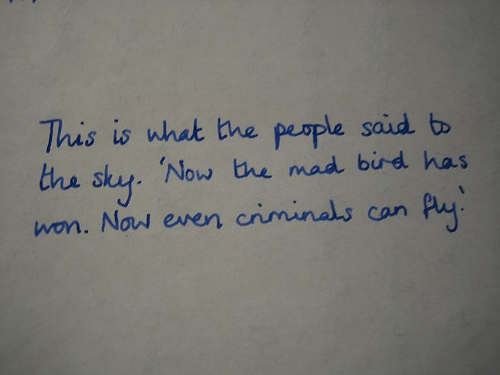 This is what the people said to
the sky. 'Now the mad bird has
won. Now even criminals can fly.'